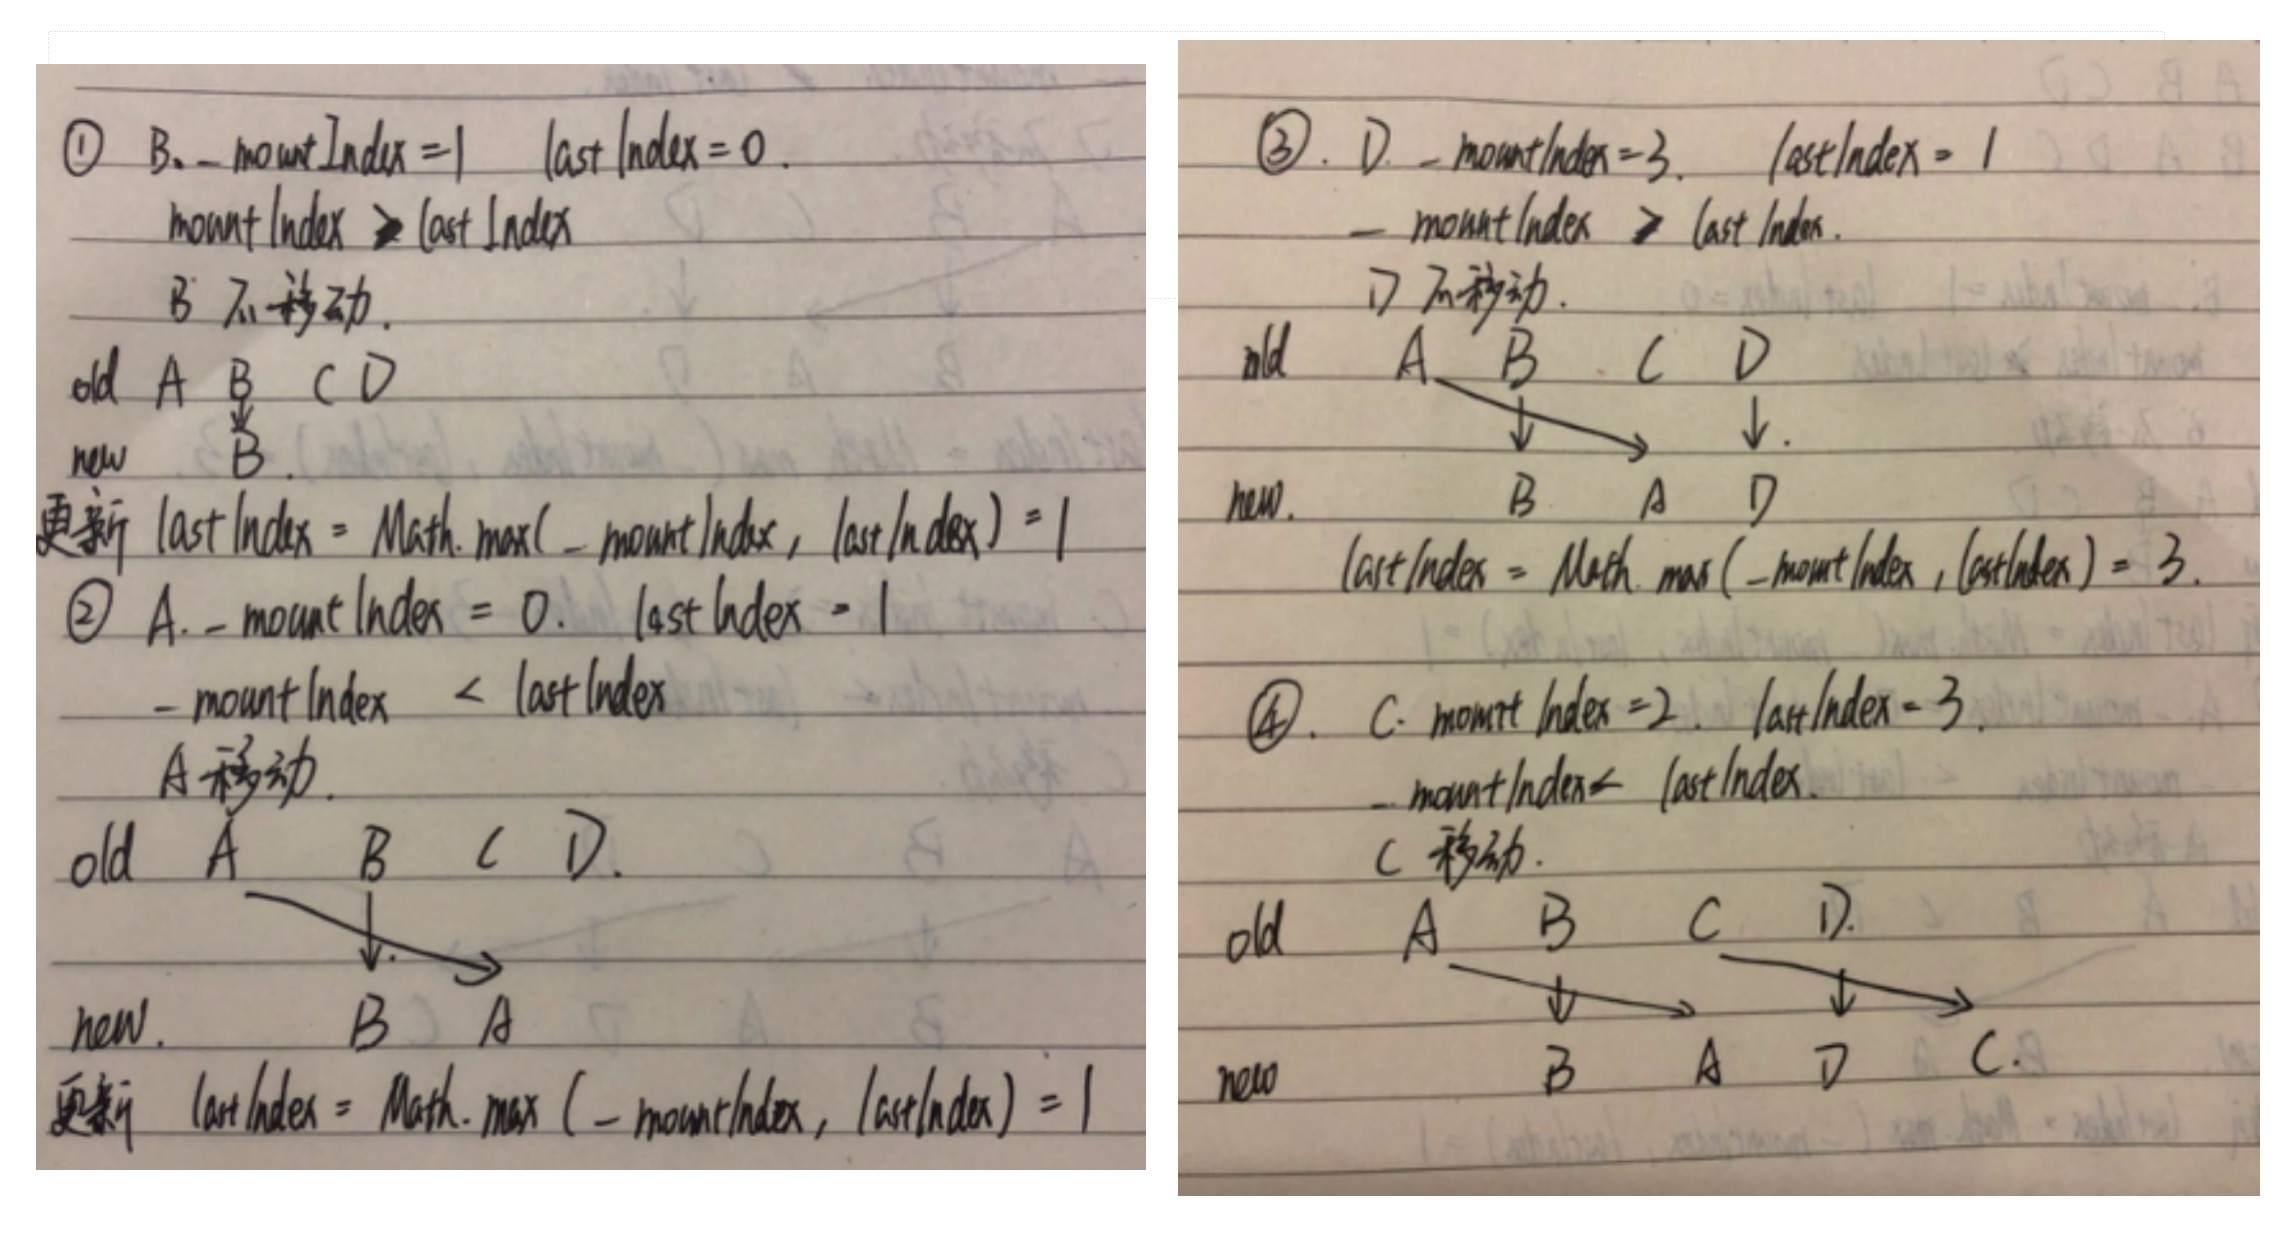 ① B._mountIndex=1 lastIndex=0.
mountIndex > lastIndex
B 不移动.
old A B C D
new B.
更新 lastIndex = Math.max(_mountIndex, lastIndex) = 1
② A._mountIndex = 0. lastIndex = 1
_mountIndex < lastIndex
A 移动.
old A B C D.
new. B A
更新 lastIndex = Math.max (_mountIndex, lastIndex) = 1
③. D._mountIndex=3. lastIndex = 1
_mountIndex > lastIndex.
D 不移动.
old A B C D
new. B A D
lastIndex = Math.max(_mountIndex, lastIndex) = 3.
④. C. mountIndex=2. lastIndex=3.
_mountIndex< lastIndex.
C 移动.
old A B C D.
new B A D C.